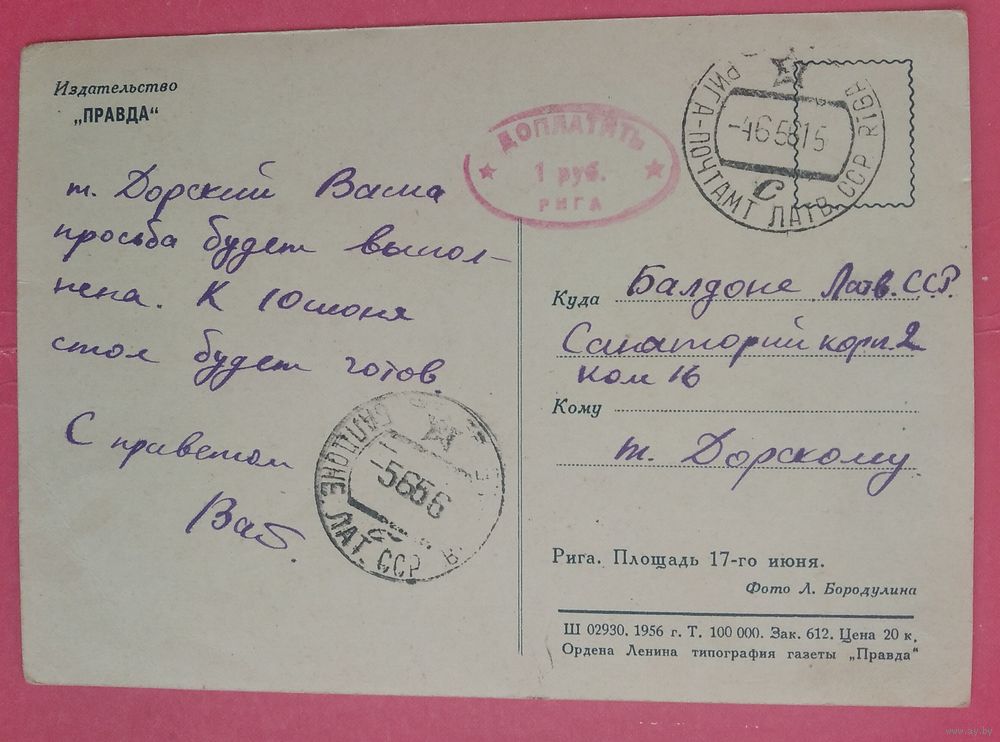 Издательство
„ПРАВДА“
т. Дорский Ваша
просьба будет выпол-
нена. К 10 июня
стол будет готов.
С приветом
ДОПЛАТИТЬ
1 руб.
РИГА
РИГА-ПОЧТАМТ ЛАТВ. ССР RĪGA
-46 5615
с
Куда Балдоне Латв. ССР.
Санаторий корп. 2
ком 16
Кому
т. Дорскому
БАЛДОНЕ. ЛАТ. ССР
-5656
Рига. Площадь 17-го июня.
Фото Л. Бородулина
Ш 02930. 1956 г. Т. 100 000. Зак. 612. Цена 20 к.
Ордена Ленина типография газеты „Правда“
www.ay.by